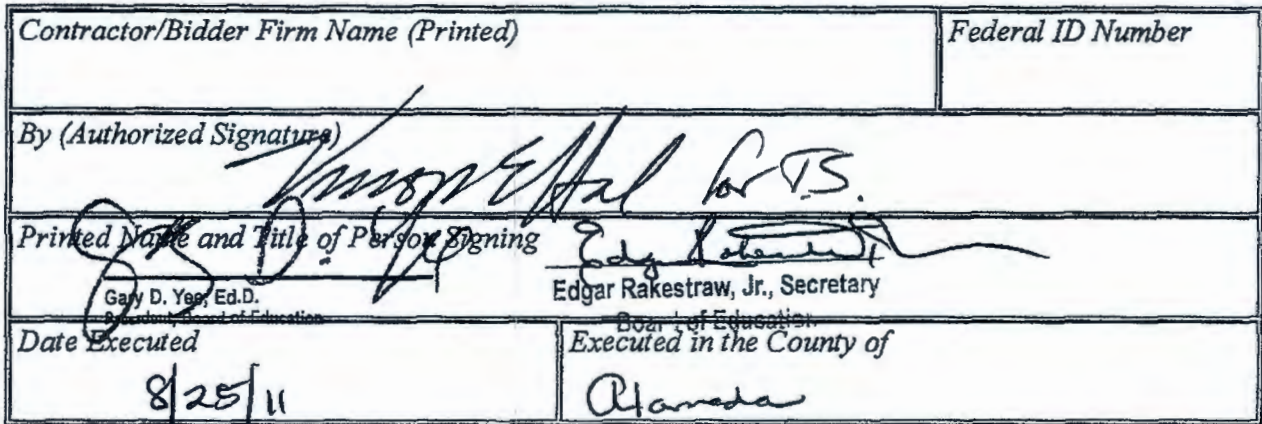 Contractor/Bidder Firm Name (Printed)
Federal ID Number
By (Authorized Signature)
for T.S.
Printed Name and Title of Person Signing
Gary D. Yee, Ed.D.
President, Board of Education
Edgar Rakestraw, Jr., Secretary
Board of Education
Date Executed
8/25/11
Executed in the County of
Alameda